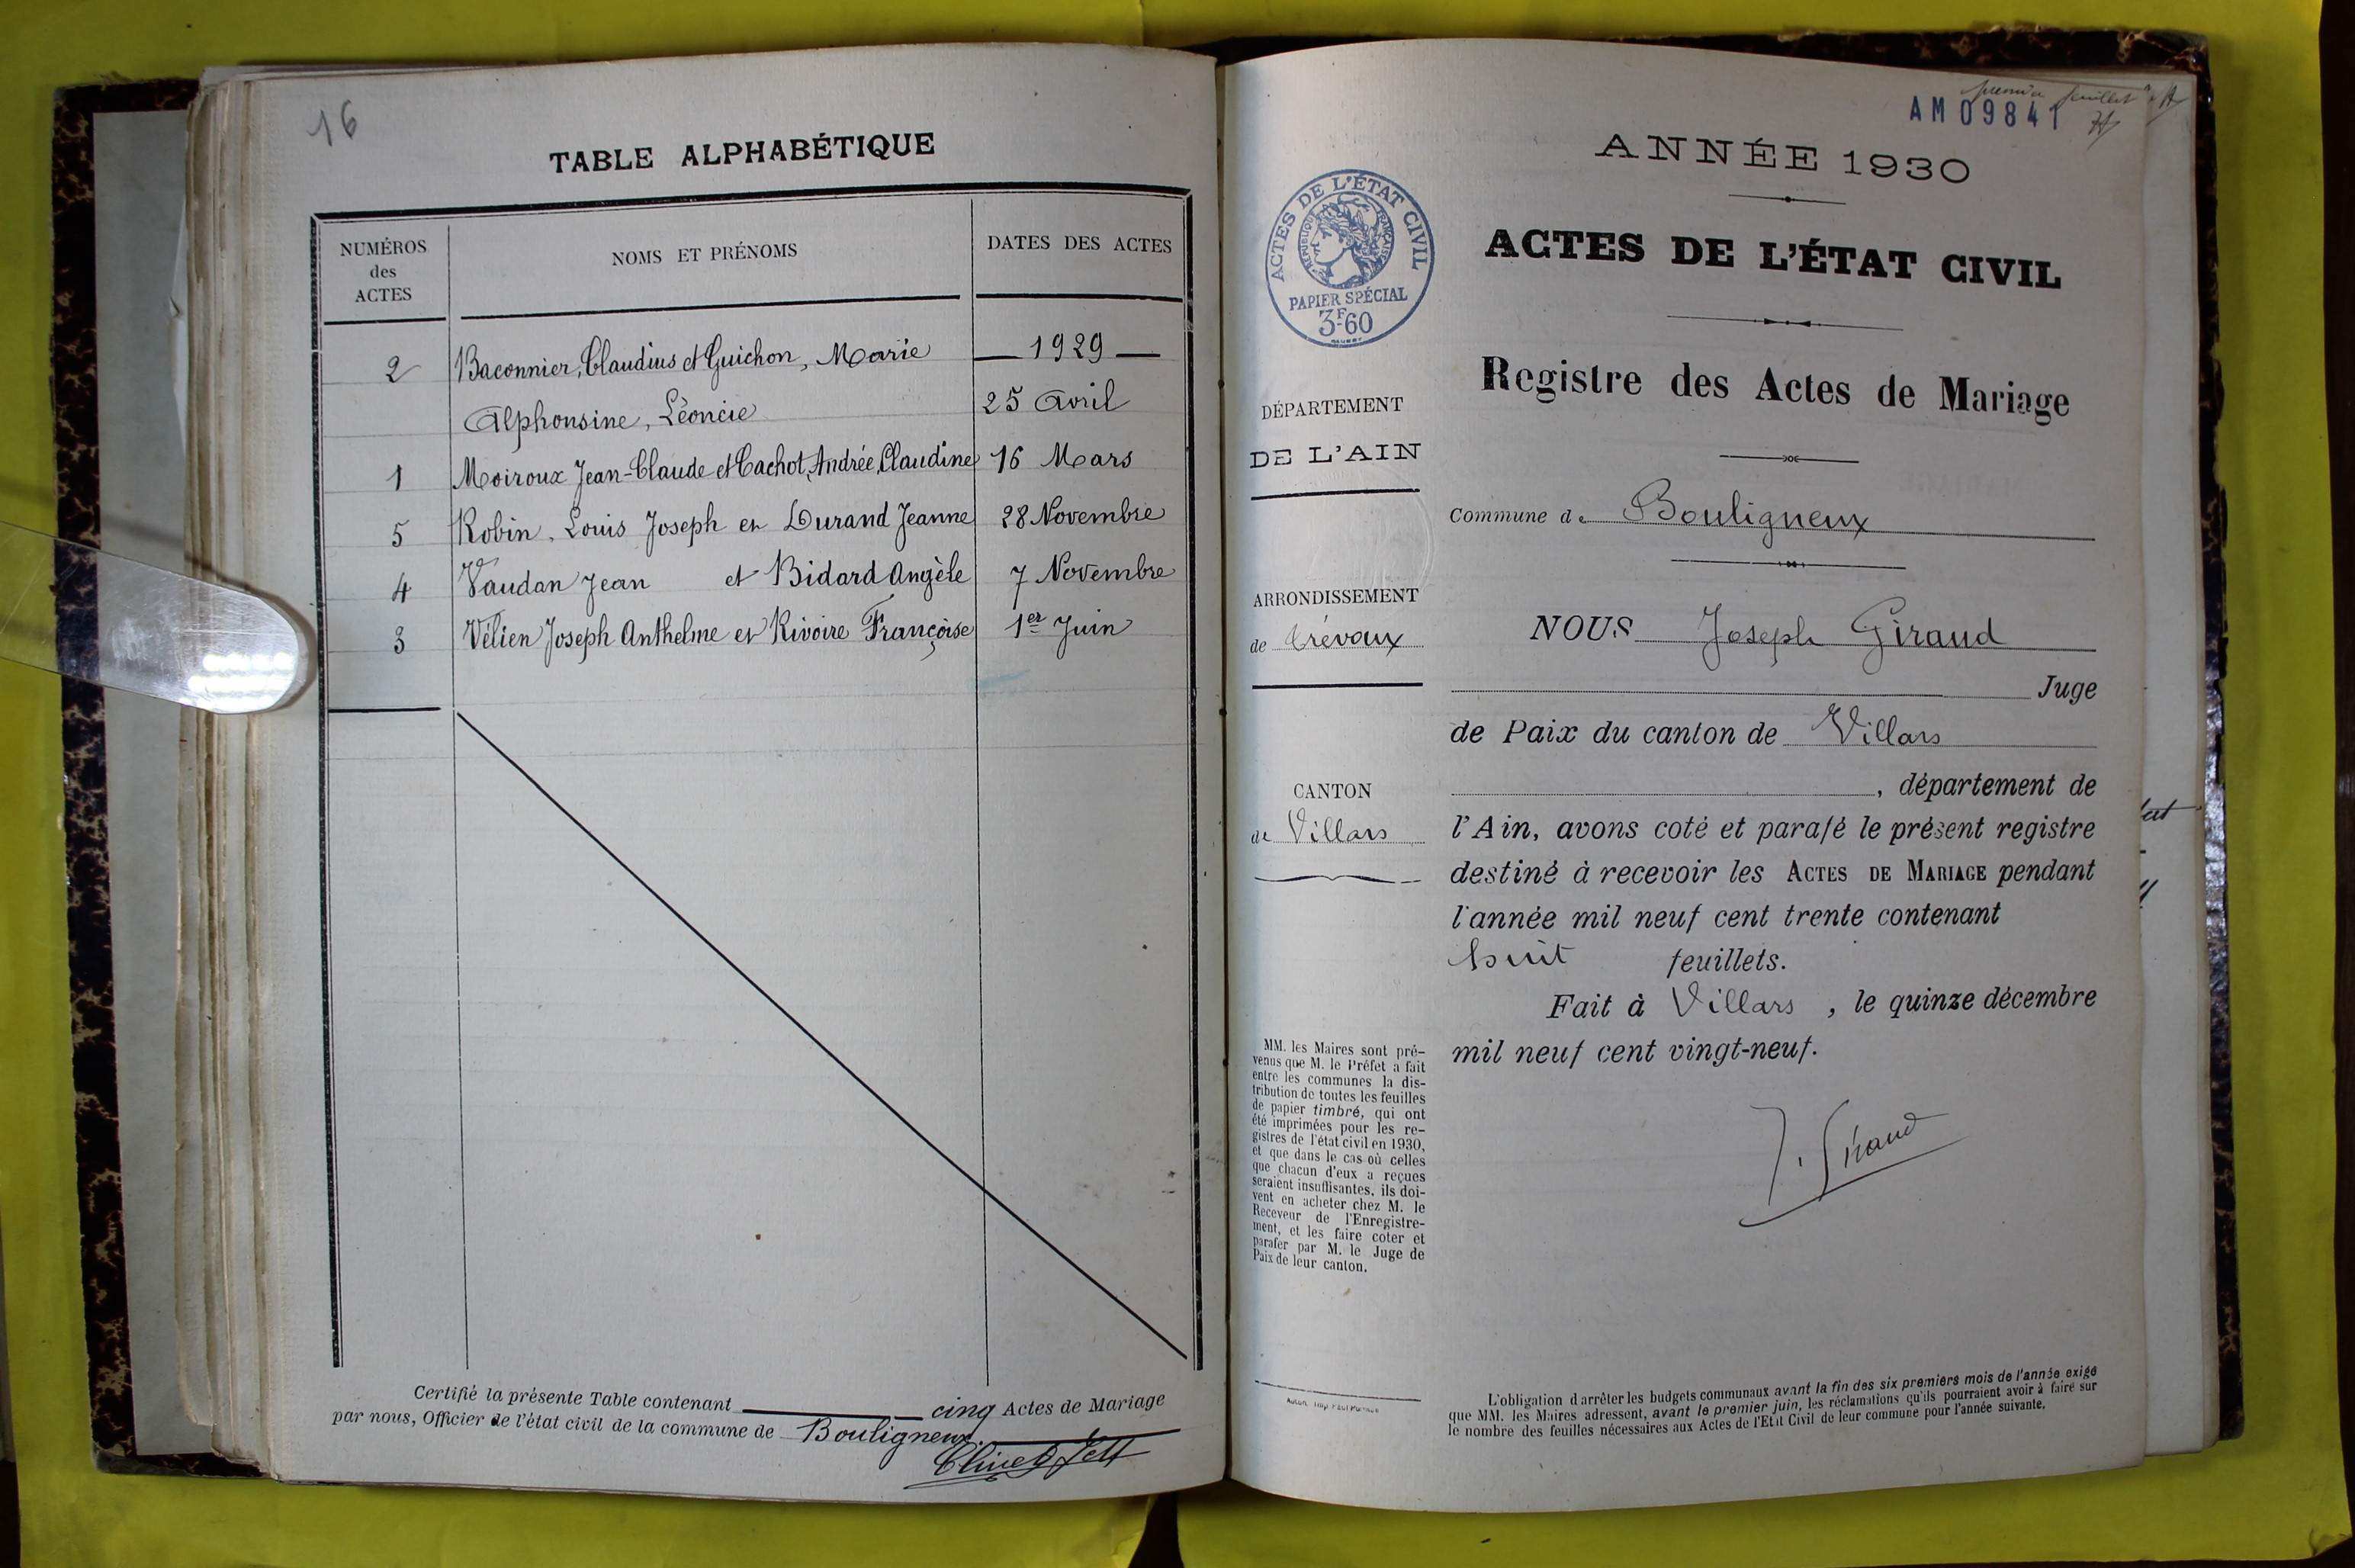 16
TABLE ALPHABÉTIQUE
NUMÉROS
des
ACTES
NOMS ET PRÉNOMS
DATES DES ACTES
2 Baconnier, Claudius et Guichon, Marie — 1929 —
Alphonsine, Léoncie 25 Avril
1 Moiroux Jean-Claude et Cachot, Andrée, Claudine 16 Mars
5 Robin, Louis Joseph et Durand Jeanne 28 Novembre
4 Vaudan Jean et Bidard Angèle 7 Novembre
3 Vélien Joseph Anthelme et Rivoire Françoise 1er Juin
Certifié la présente Table contenant cinq Actes de Mariage
par nous, Officier de l'état civil de la commune de Bouligneux
premier feuillet
AM 09841
ANNÉE 1930
ACTES DE L'ÉTAT CIVIL
RÉPUBLIQUE FRANÇAISE
PAPIER SPÉCIAL
3F60
ACTES DE L'ÉTAT CIVIL
Registre des Actes de Mariage
DÉPARTEMENT
DE L'AIN
Commune de Bouligneux
ARRONDISSEMENT
de Trévoux
NOUS Joseph Giraud
Juge
de Paix du canton de Villars
CANTON
de Villars
, département de
l'Ain, avons coté et parafé le présent registre
destiné à recevoir les ACTES DE MARIAGE pendant
l'année mil neuf cent trente contenant
huit feuillets.
Fait à Villars, le quinze décembre
mil neuf cent vingt-neuf.
J. Giraud
MM. les Maires sont pré-
venus que M. le Préfet a fait
entre les communes la dis-
tribution de toutes les feuilles
de papier timbré, qui ont
été imprimées pour les re-
gistres de l'état civil en 1930,
et que dans le cas où celles
que chacun d'eux a reçues
seraient insuffisantes, ils doi-
vent en acheter chez M. le
Receveur de l'Enregistre-
ment, et les faire coter et
parafer par M. le Juge de
Paix de leur canton.
L'obligation d'arrêter les budgets communaux avant la fin des six premiers mois de l'année exige
que MM. les Maires adressent, avant le premier juin, les réclamations qu'ils pourraient avoir à faire sur
le nombre des feuilles nécessaires aux Actes de l'Etat Civil de leur commune pour l'année suivante.